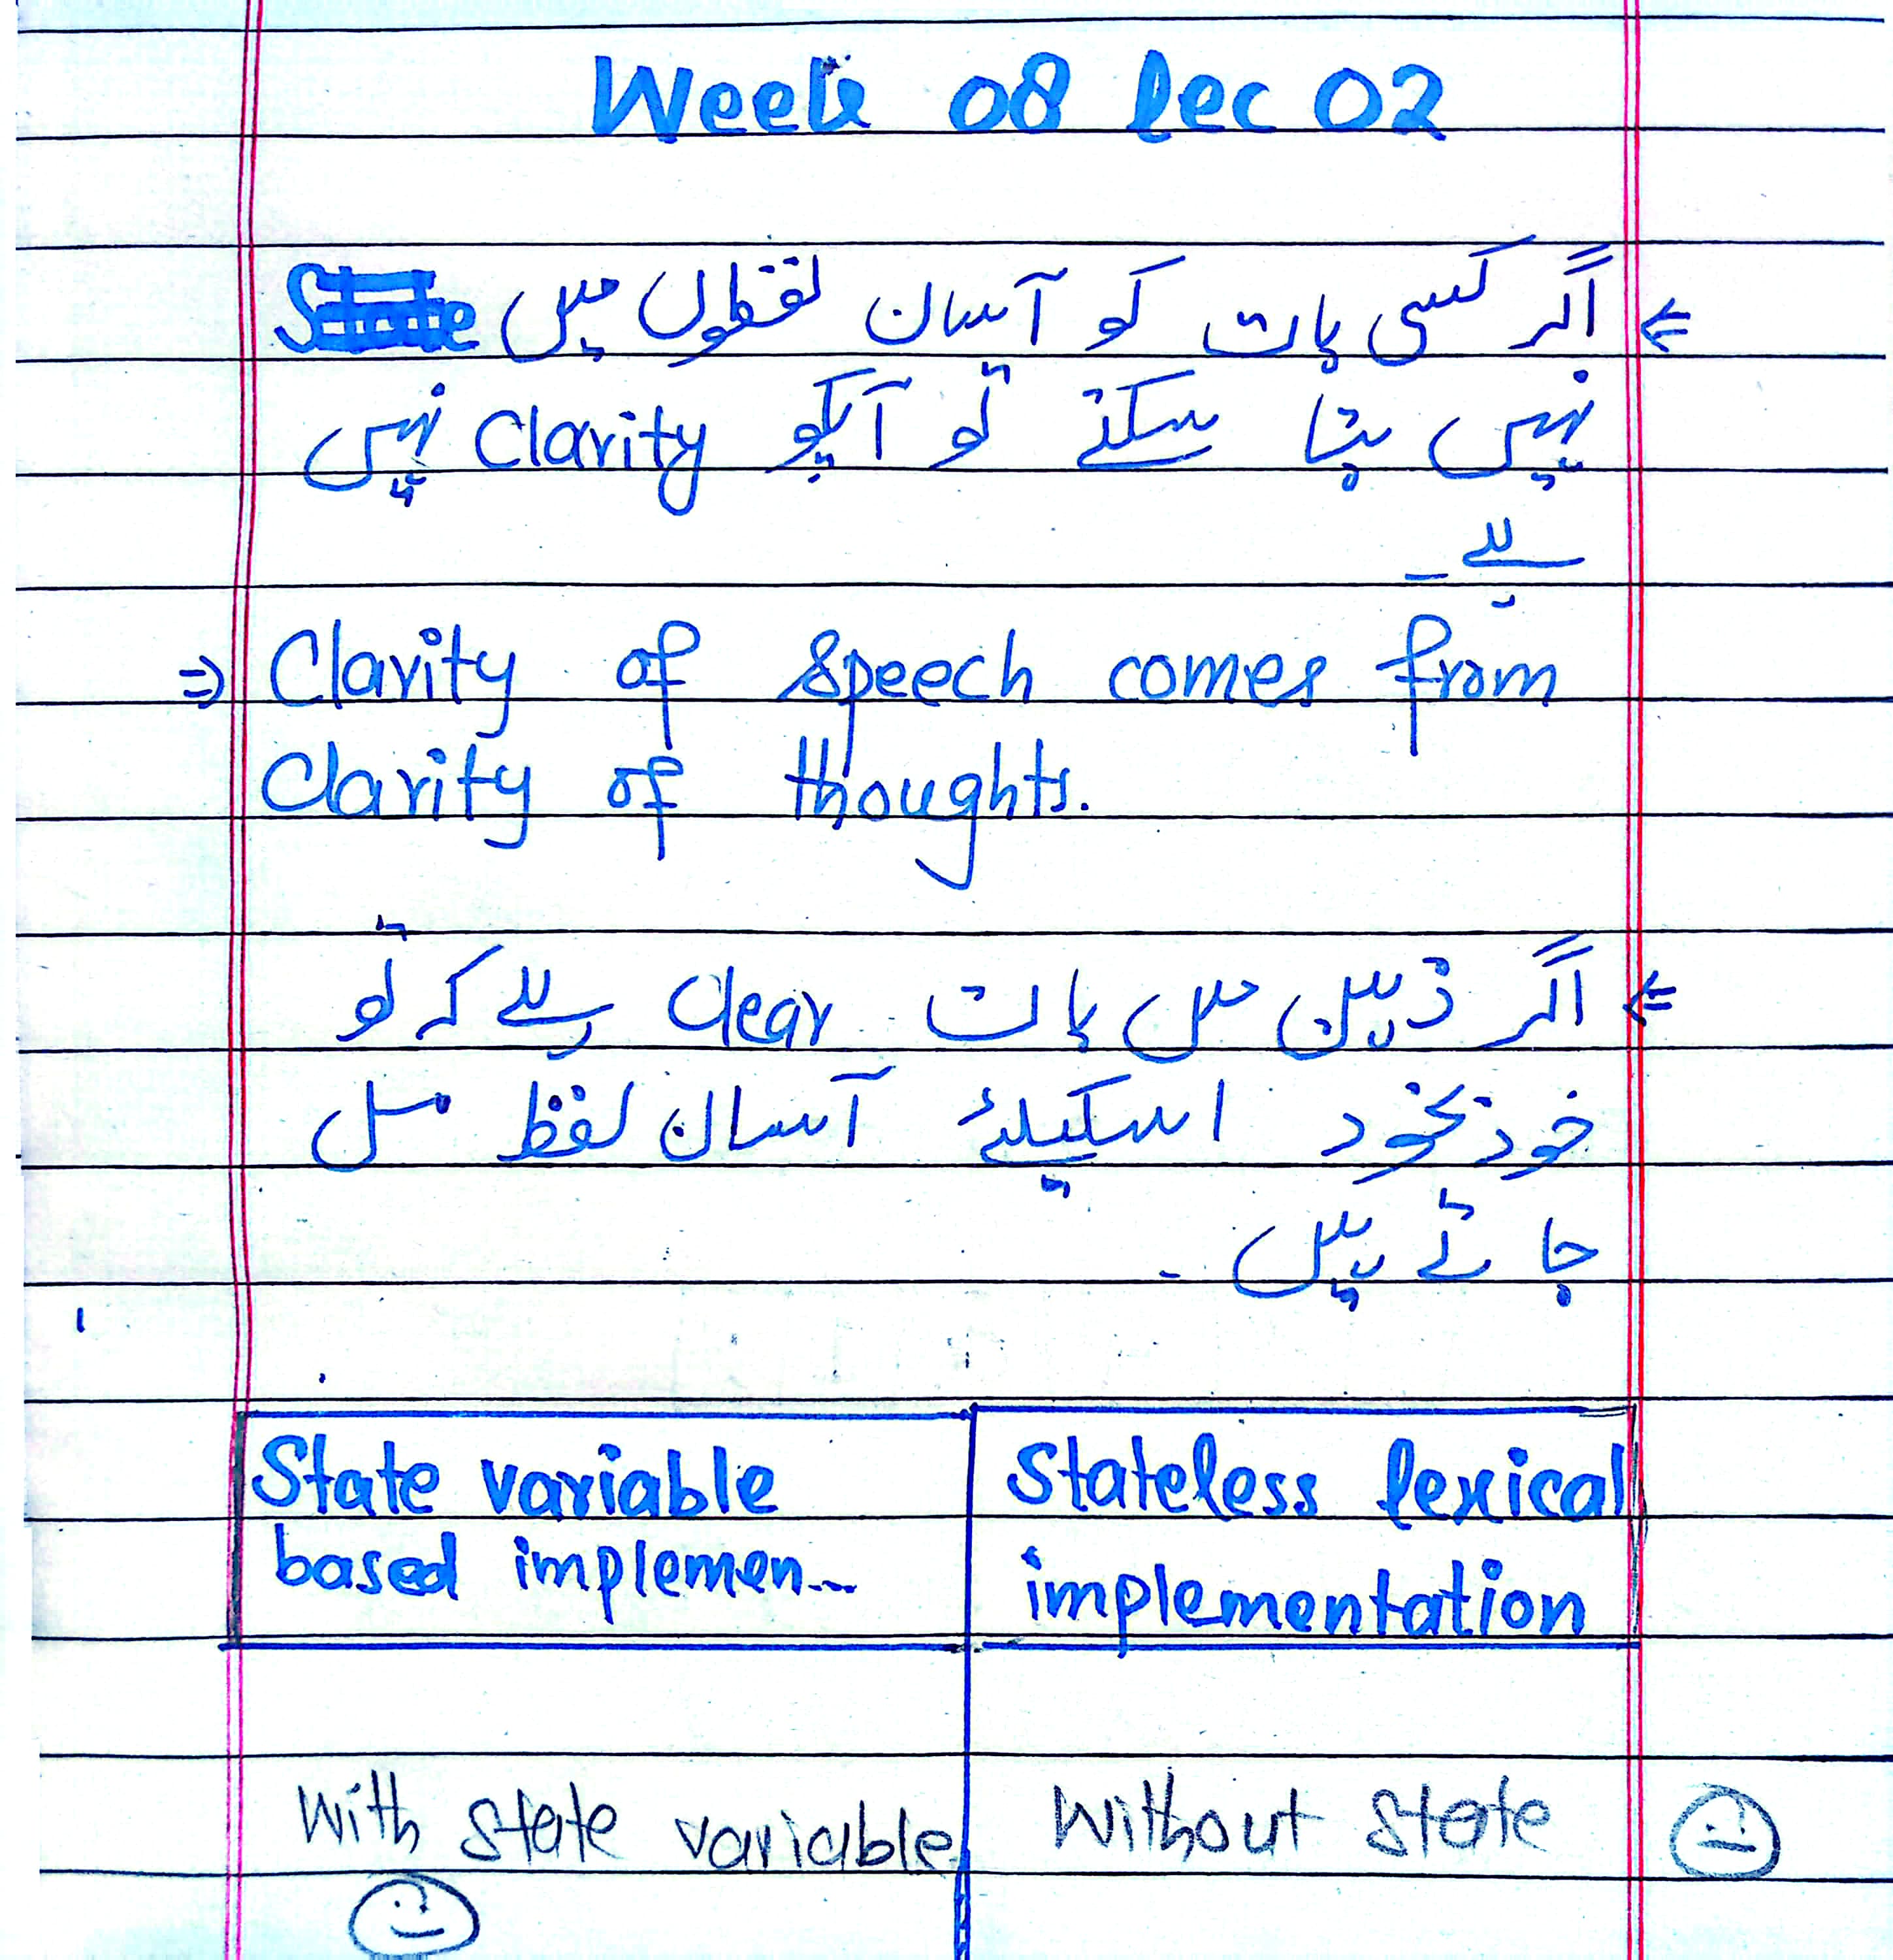 Week 08 Lec 02
اگر کسی بات کو آسان لفظوں میں
نہیں بتا سکتے تو آپکو Clarity نہیں
ہے۔
⇒ Clarity of speech comes from
Clarity of thoughts.
اگر ذہن میں بات clear ہے کہ تو
خود بخود اسکیلئے آسان لفظ مل
جاتے ہیں۔
State variable
based implemen...
Stateless lexical
implementation
With state variable
Without state